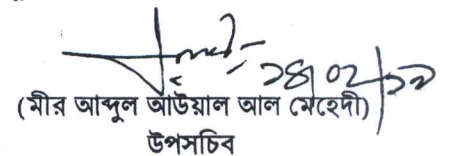 ১৪/০২/১৯
(মীর আব্দুল আউয়াল আল মেহেদী)
উপসচিব